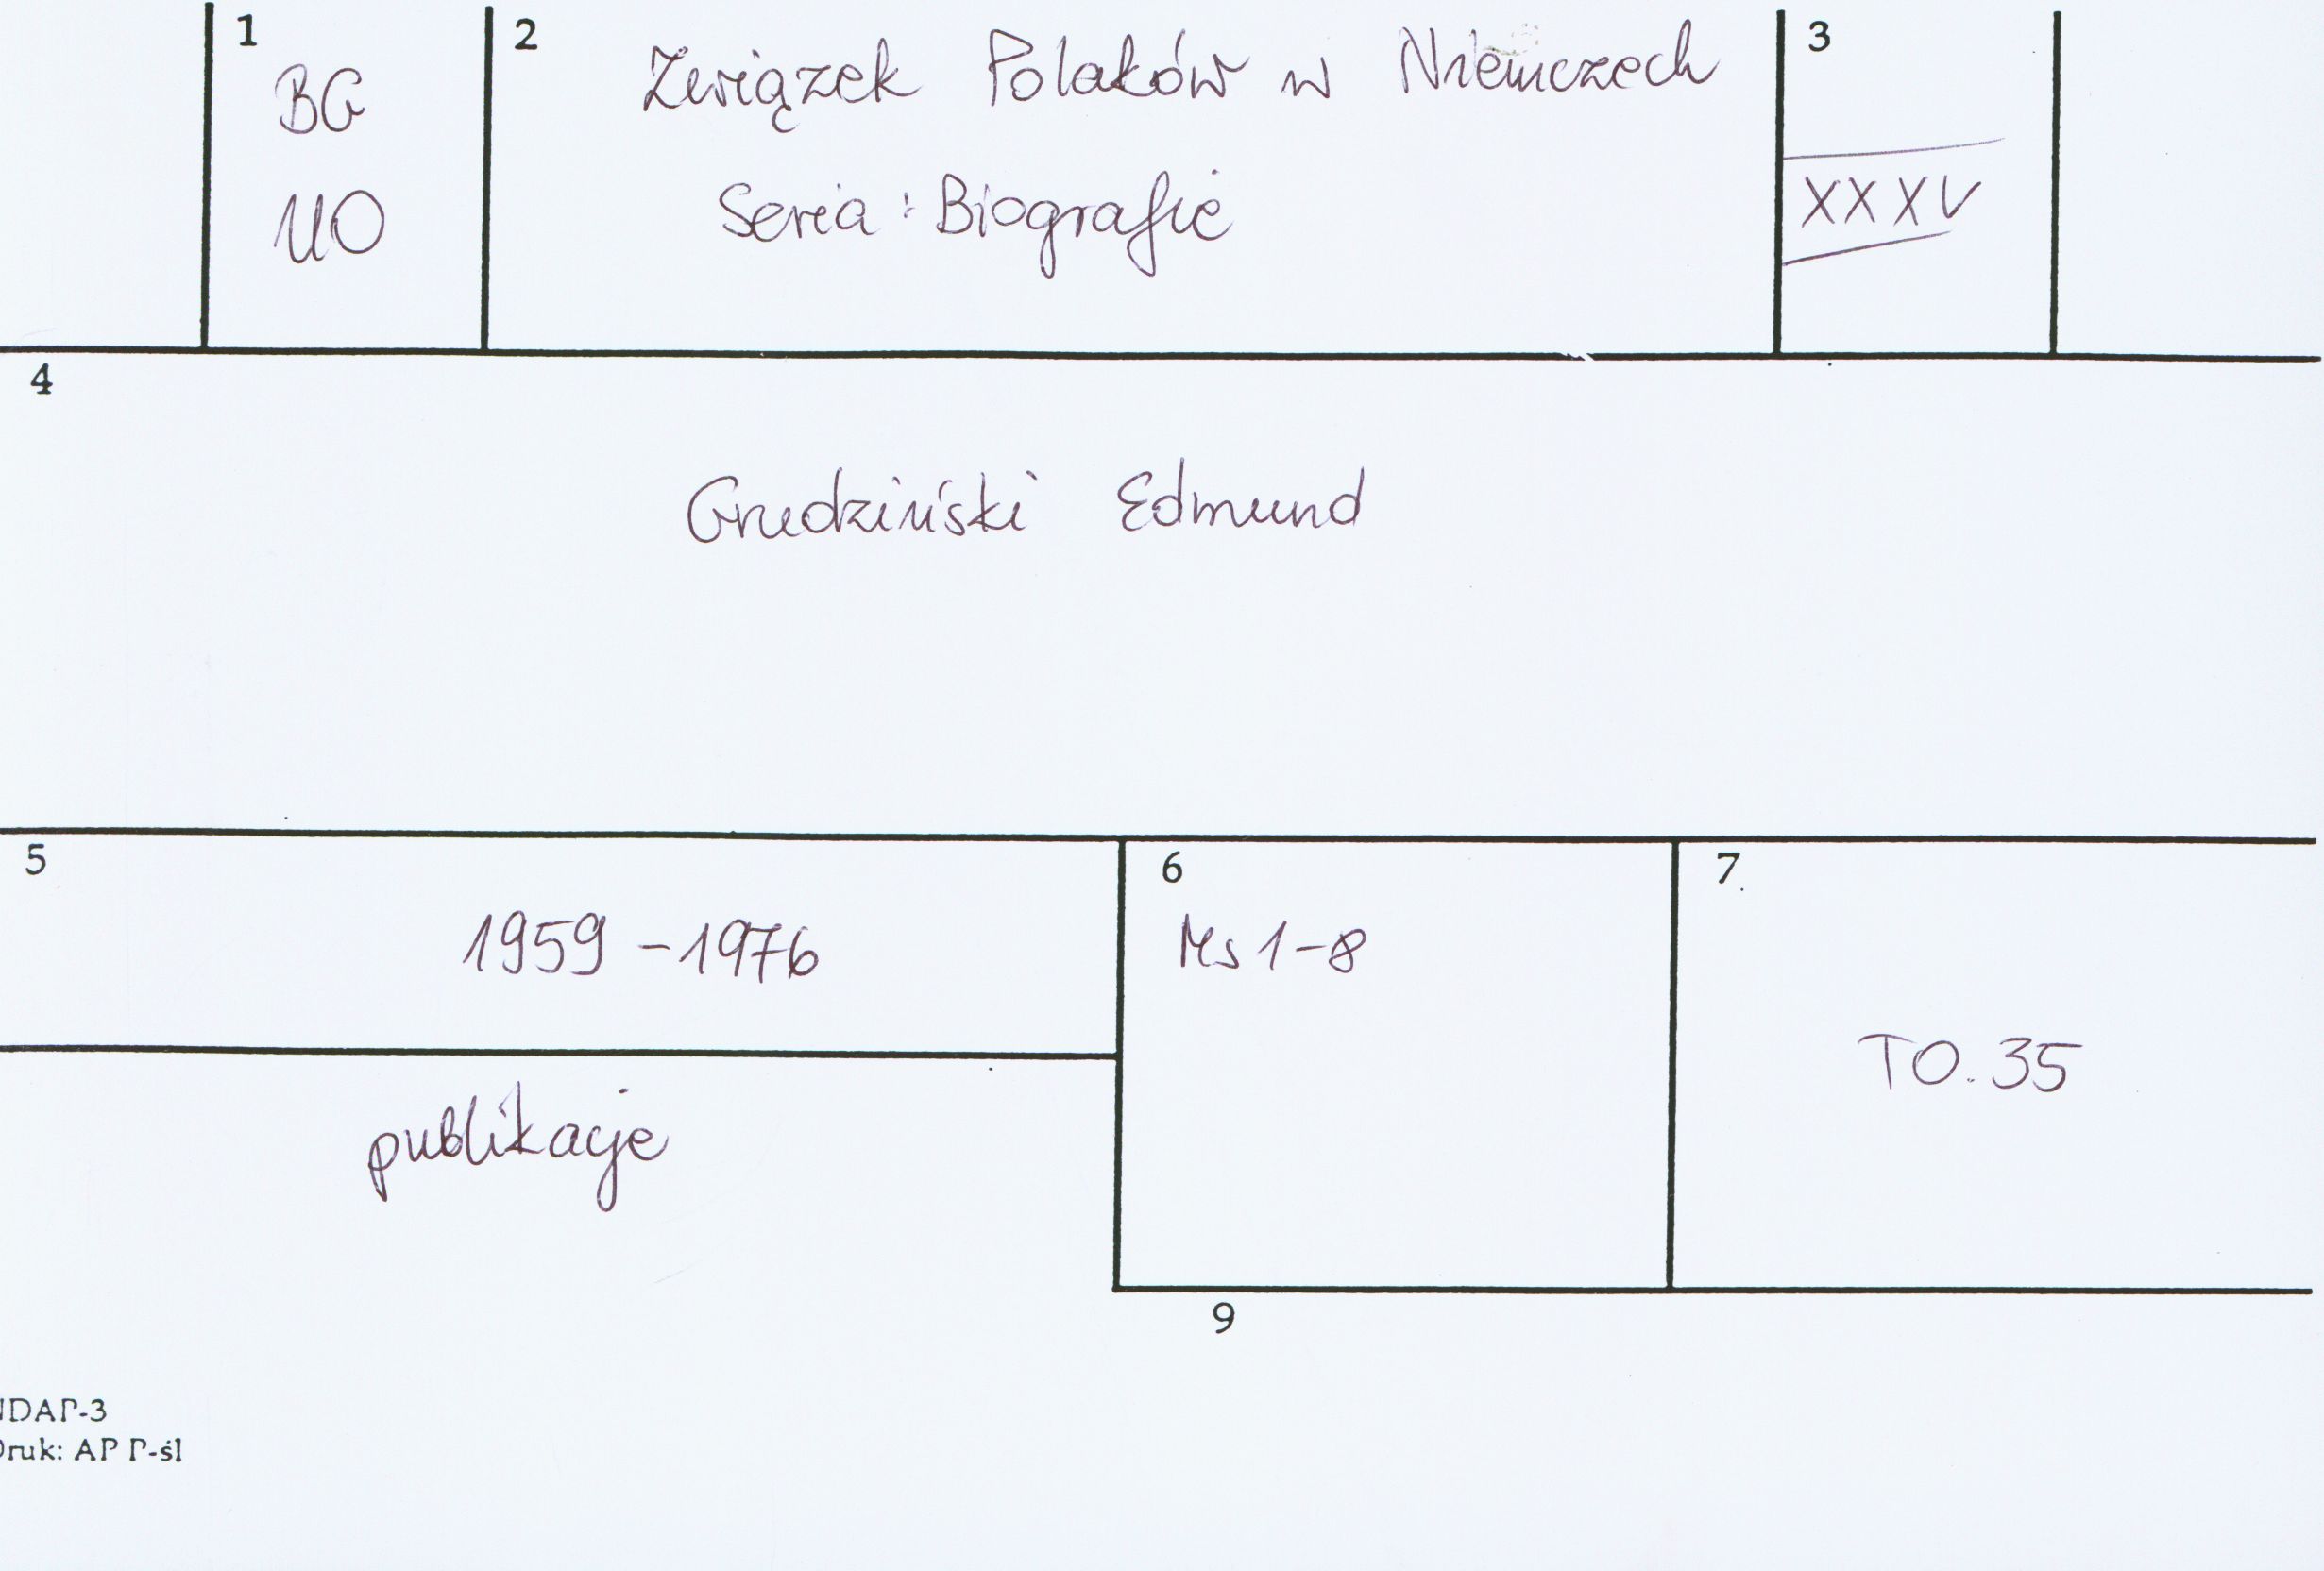 1
BG
UO
2
Związek Polaków w Niemczech
Seria: Biografie
3
XXXV
4
Grudziński Edmund
5
1959-1976
publikacje
6
Ms 1-8
7
TO.35
9
NDAP-3
Druk: AP P-śl